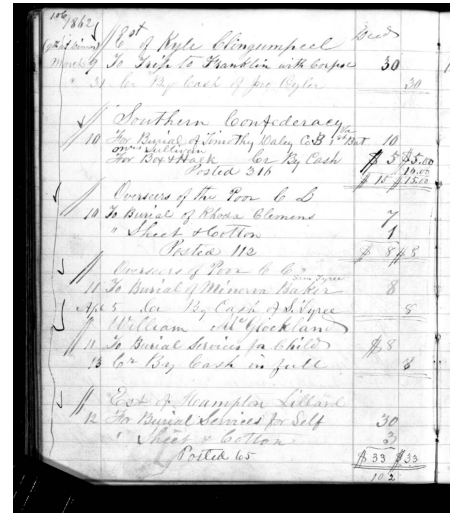 106
1862
Est of Kyle Clingumpeel Decd
March 9 To Trip to Franklin with Corpse 30
" 31 Cr By Cash of Jno 30
Southern Confederacy
10 For Burial of Timothy Daley Co B 1st Bat 10
Mrs Sullivan
For Box & Hack Cr By Cash $5 $5.00
10.00
Posted 316 $15 $15.00
Overseers of the Poor C L
10 To Burial of Rhoda Clemens 7
" Sheet & Cotton 1
Posted 112 $8 $8
Overseers of Poor C C
11 To Burial of Minerva Baker 8
Apl 5 By Cash of S. Tyree 8
William McGlockland
11 To Burial Services for Child $8
13 Cr By Cash in full 8
Est of Hampton Lillard
12 For Burial Services for Self 30
" Sheet & Cotton 3
Posted 65 $33 $33
102